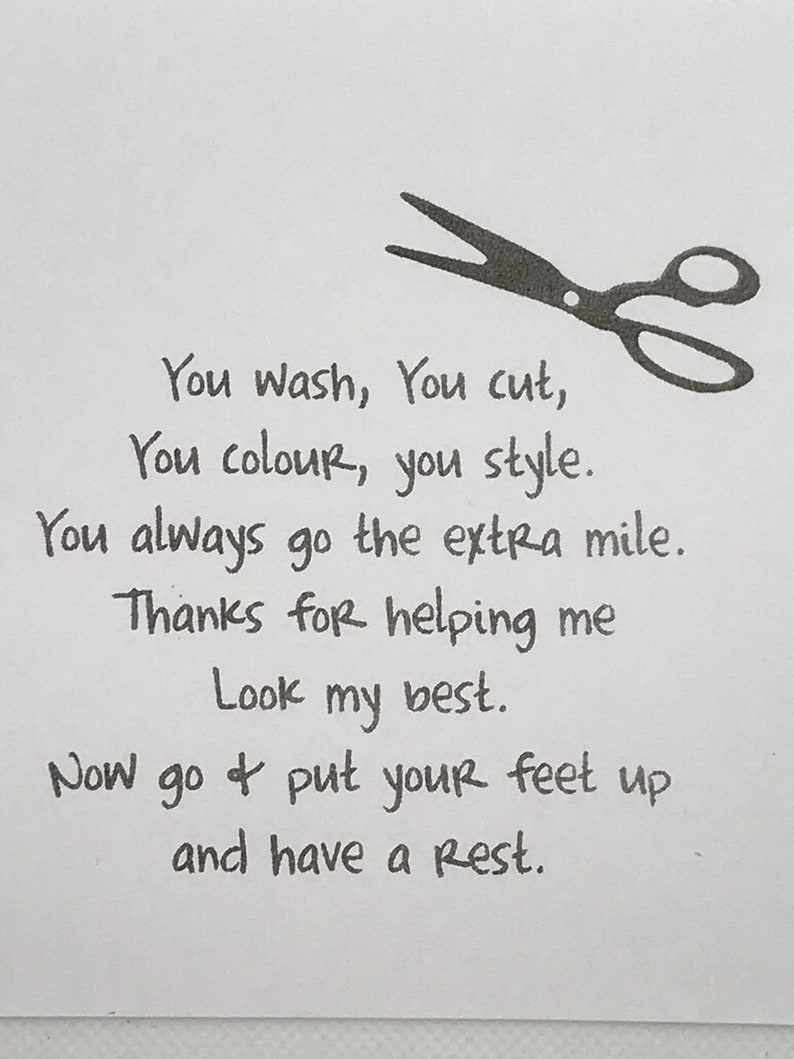 You wash, You cut,
You colour, you style.
You always go the extra mile.
Thanks for helping me
Look my best.
Now go & put your feet up
and have a rest.